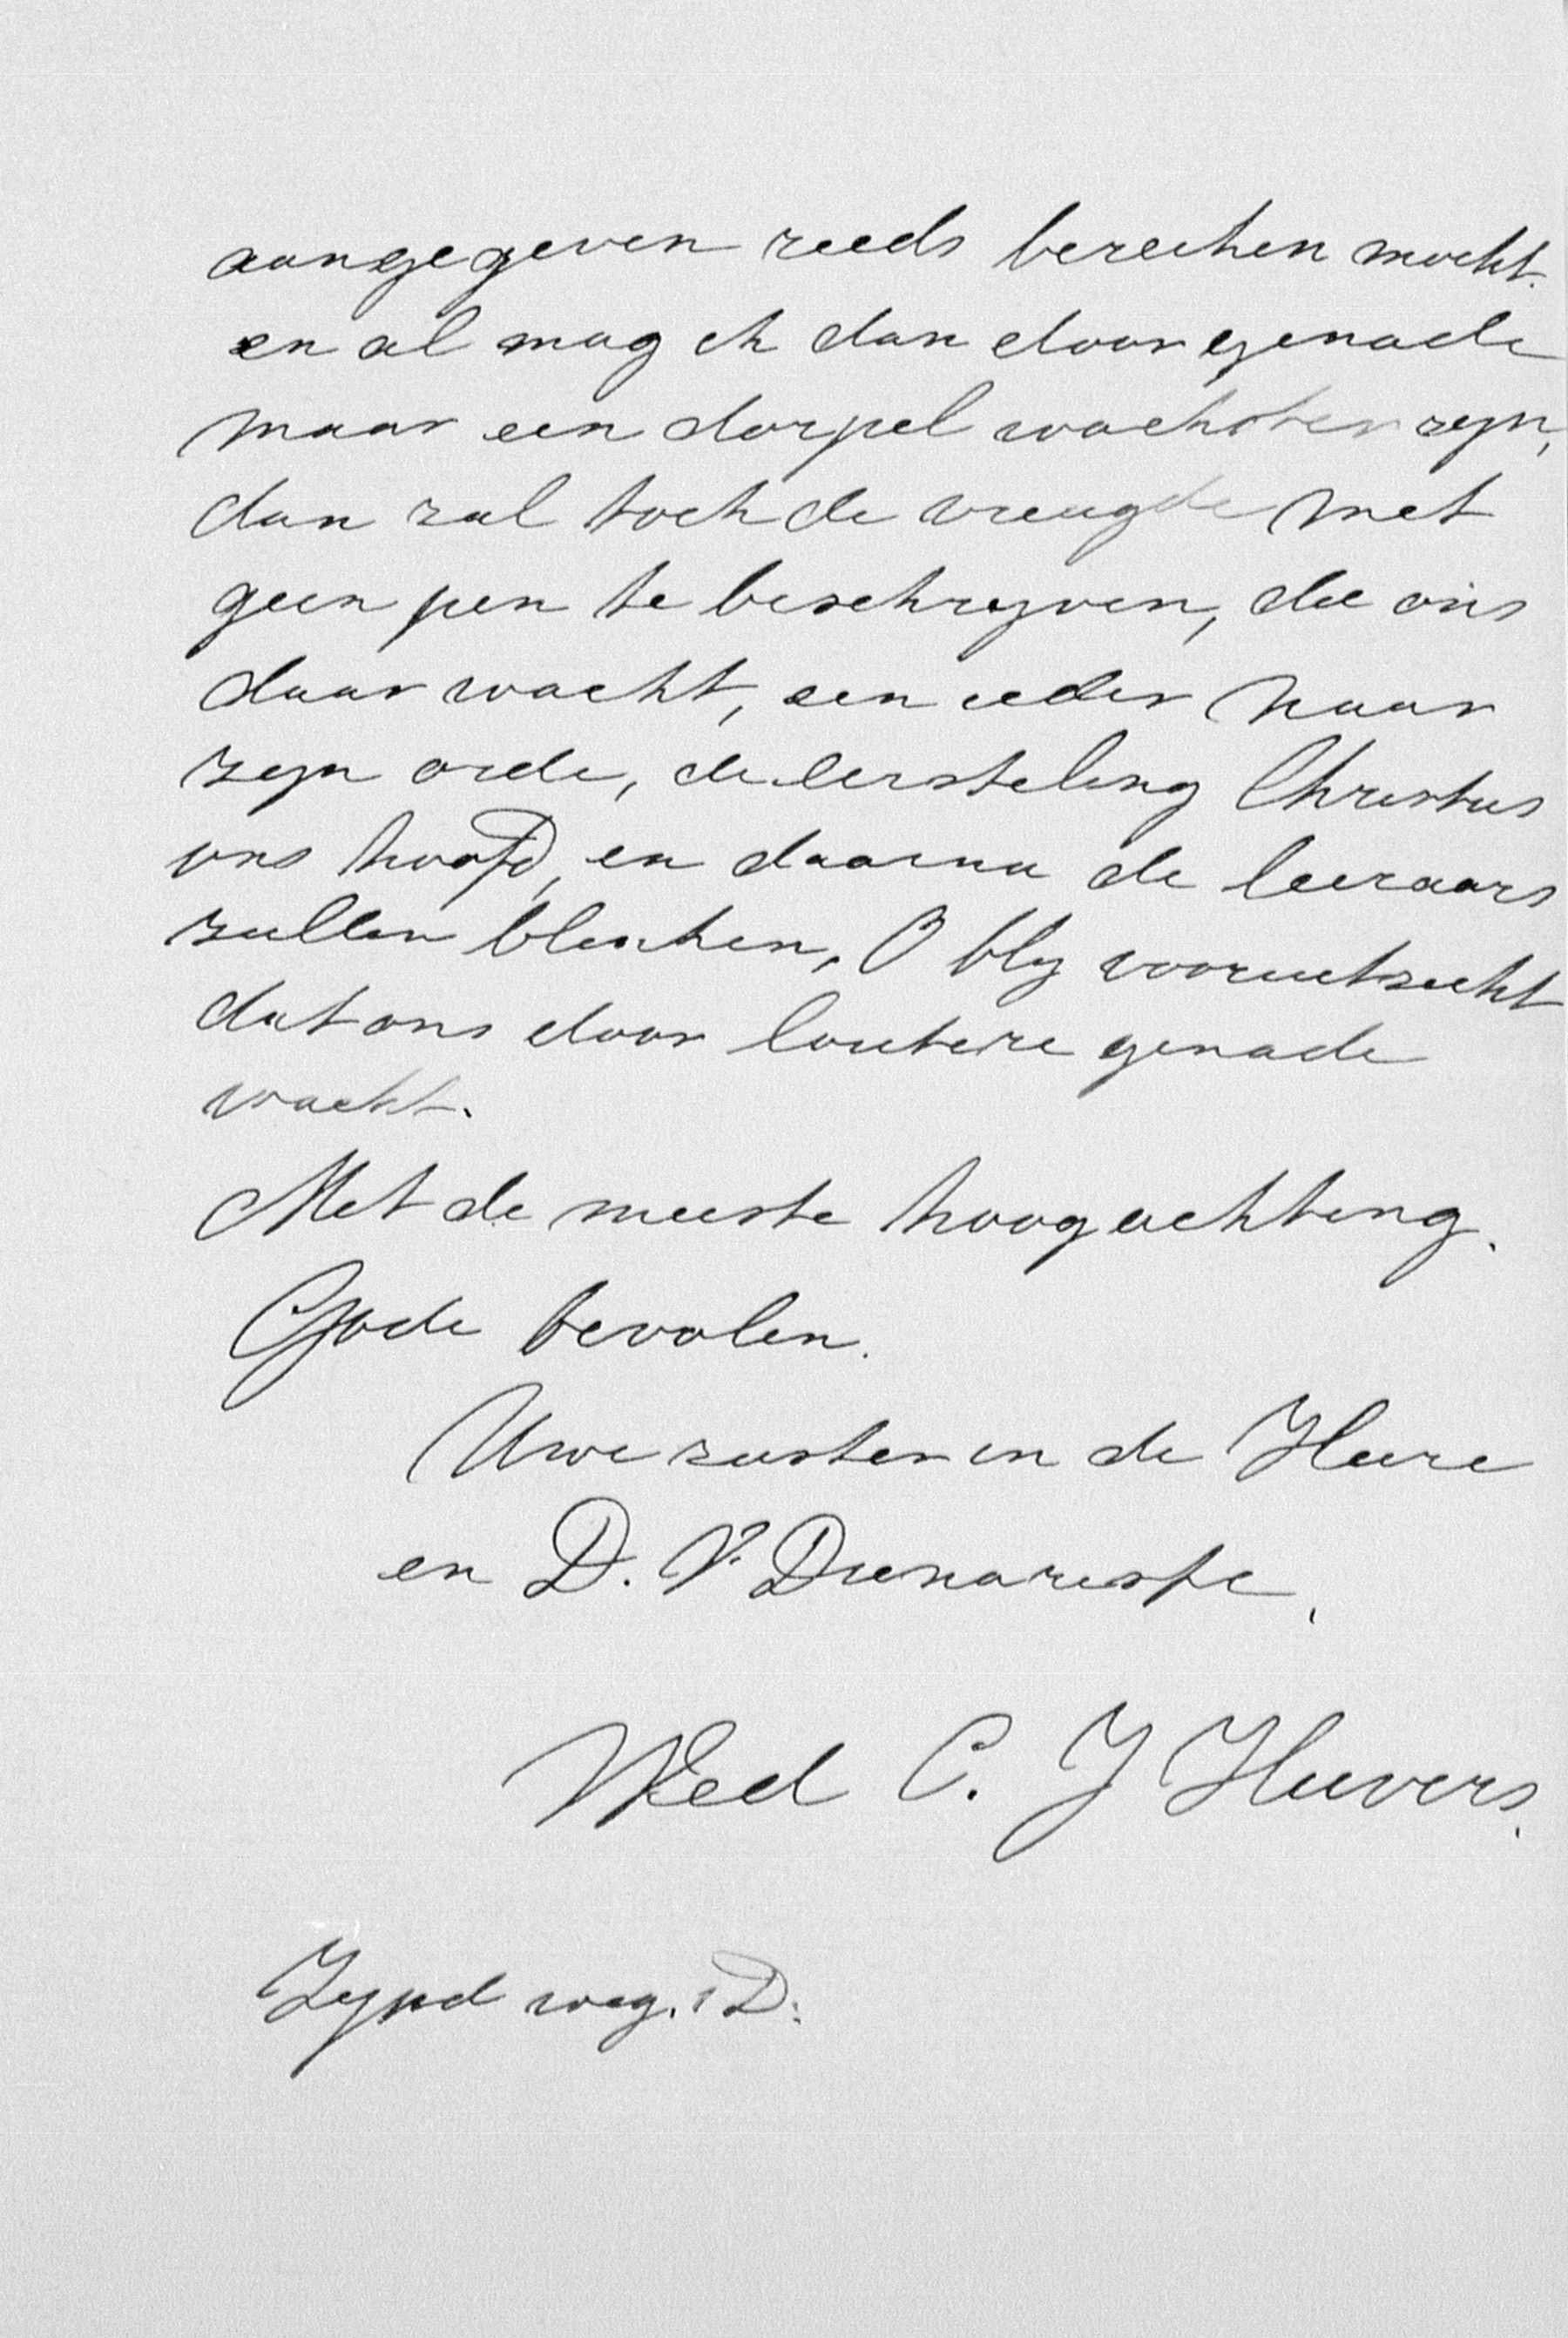 aangegeven reeds bereiken mocht.
en al mag ik dan door genade
maar een dorpel wachster zijn,
dan zal toch de vreugde met
geen pen te beschrijven, die ons
daar wacht, een ieder naar
zijn orde, de eersteling Christus
ons hoofd, en daarna de leeraars
zullen blinken, O blij vooruitzicht
dat ons door loutere genade
wacht.
Met de meeste hoogachting.
Gode bevolen.
Uwe zuster in de Heere
en D. V. Dienareste,
Wed C. J Huvers.
Zijpd weg. D: